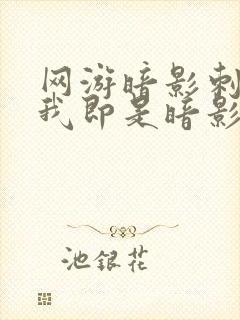 网游暗影刺
我即是暗影
池銀花